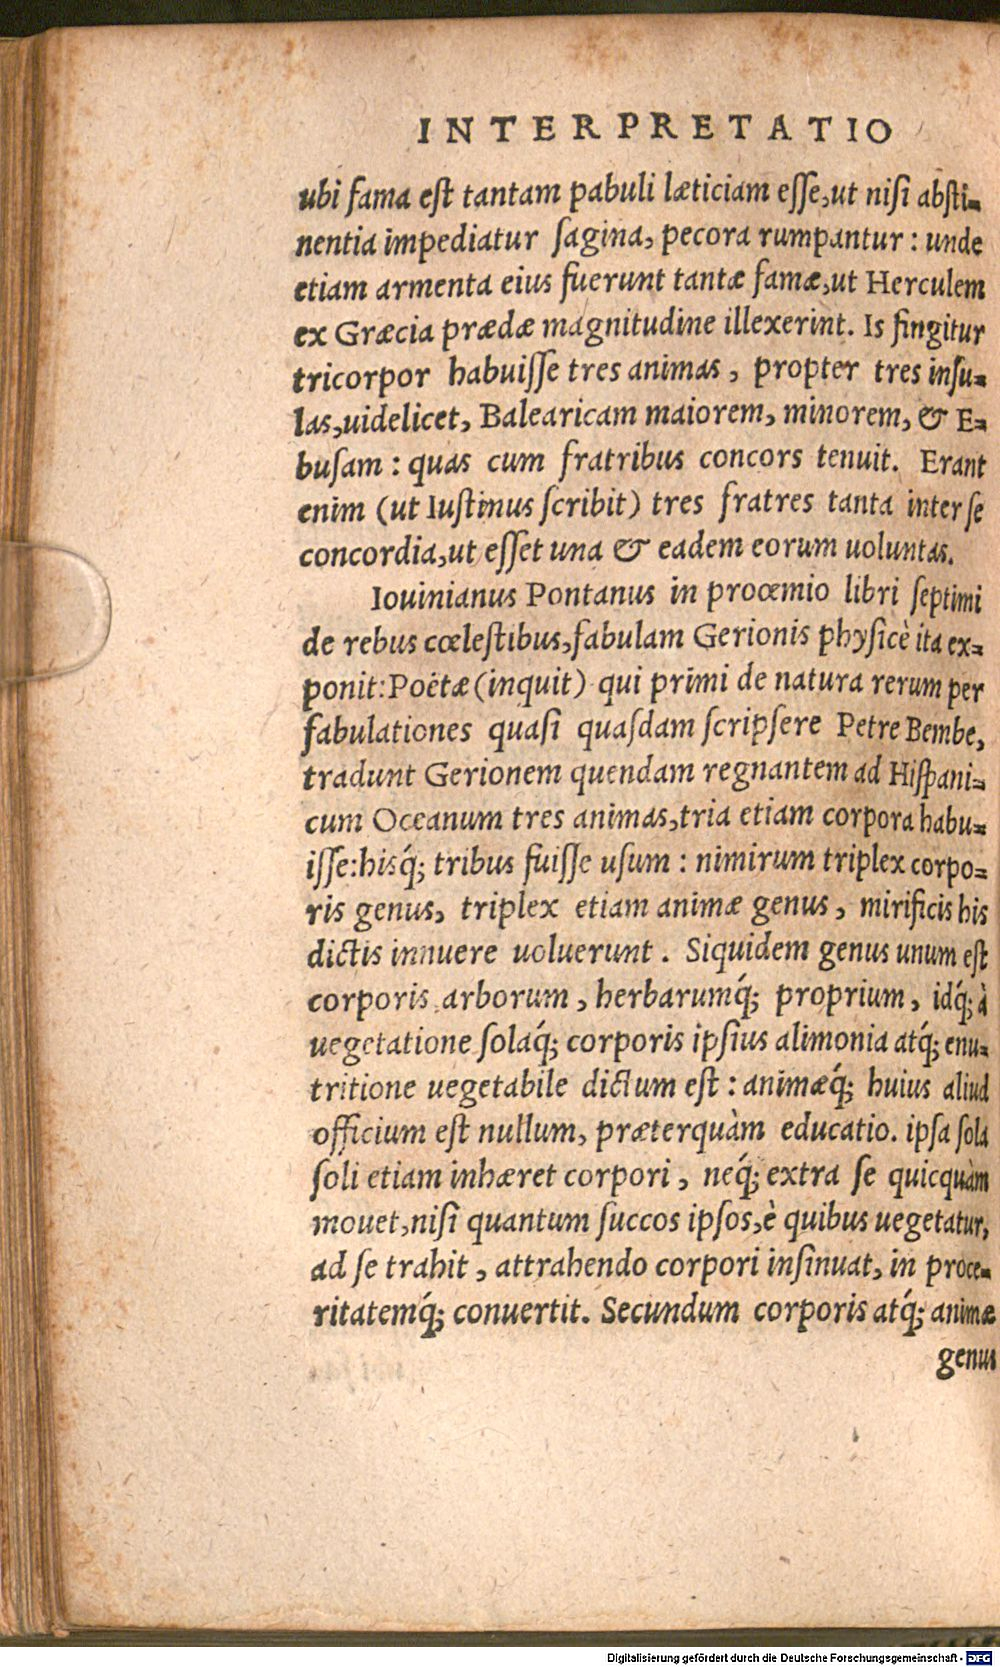 INTERPRETATIO
ubi fama eſt tantam pabuli læticiam eſſe,ut niſi abſti-
nentia impediatur ſagina, pecora rumpantur : unde
etiam armenta eius fuerunt tantæ famæ,ut Herculem
ex Græcia prædæ magnitudine illexerint. Is fingitur
tricorpor habuiſſe tres animas , propter tres inſu-
las,uidelicet, Balearicam maiorem, minorem, & E-
buſam : quas cum fratribus concors tenuit. Erant
enim (ut Iuſtinus ſcribit) tres fratres tanta inter ſe
concordia,ut eſſet una & eadem eorum uoluntas.
Iouinianus Pontanus in proœmio libri ſeptimi
de rebus cœleſtibus,fabulam Gerionis phyſicè ita ex-
ponit: Poëtæ (inquit) qui primi de natura rerum per
fabulationes quaſi quaſdam ſcripſere Petre Bembe,
tradunt Gerionem quendam regnantem ad Hiſpani-
cum Oceanum tres animas,tria etiam corpora habu-
iſſe:hisq́; tribus fuiſſe uſum : nimirum triplex corpo-
ris genus, triplex etiam animæ genus , mirificis his
dictis innuere uoluerunt . Siquidem genus unum eſt
corporis arborum , herbarumq́; proprium , idq́; à
uegetatione ſolaq́; corporis ipſius alimonia atq́; enu-
tritione uegetabile dictum eſt : animæq́; huius aliud
officium eſt nullum, præterquàm educatio. ipſa ſola
ſoli etiam inhæret corpori , neq́; extra ſe quicquàm
mouet,niſi quantum ſuccos ipſos,è quibus uegetatur,
ad ſe trahit , attrahendo corpori inſinuat, in proce-
ritatemq́; conuertit. Secundum corporis atq́; animæ
genus
Digitalisierung gefördert durch die Deutsche Forschungsgemeinschaft - DFG